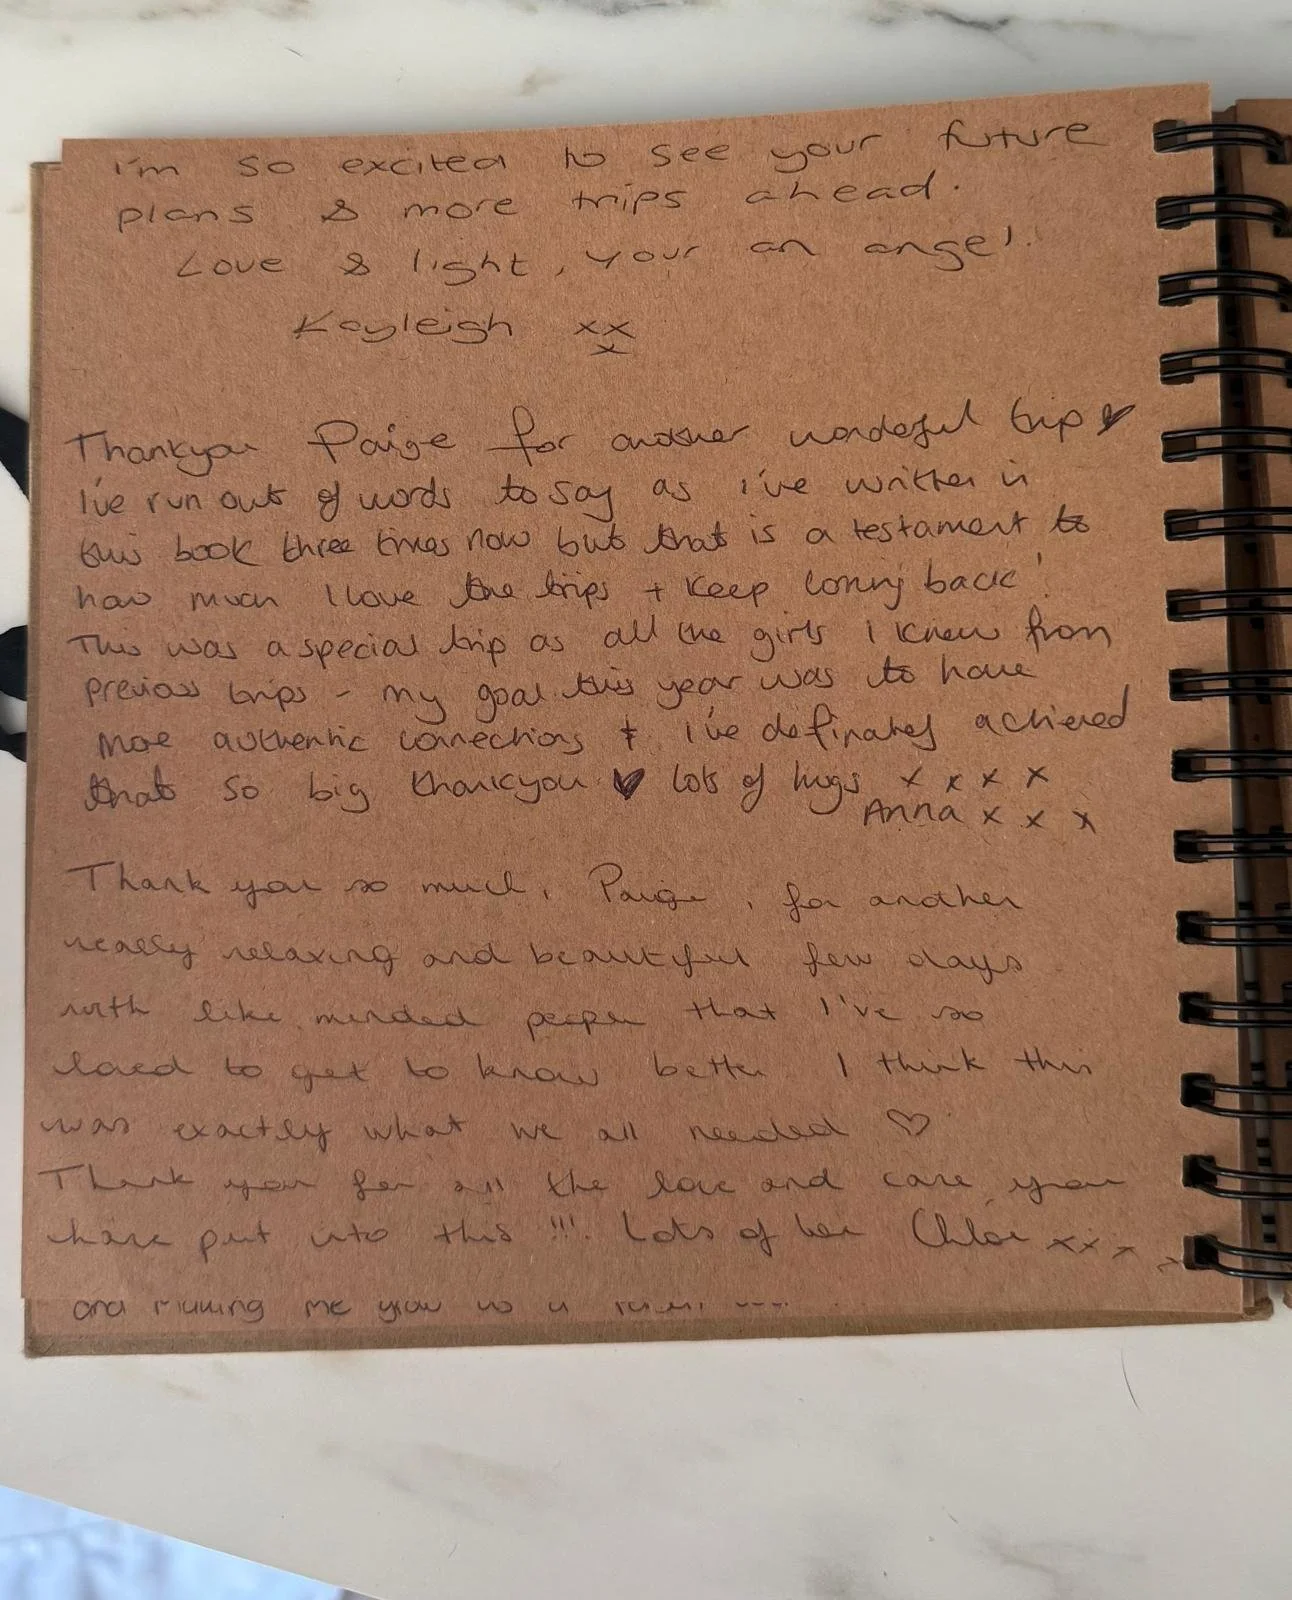 I'm so excited to see your future
plans & more trips ahead.
Love & light, your an angel.
Kayleigh xx
x
Thankyou Paige for another wonderful trip ♥
I've run out of words to say as I've written in
this book three times now but that is a testament to
how much I love the trips + keep coming back!
This was a special trip as all the girls I knew from
previous trips - my goal this year was to have
more authentic connections & I've definately achieved
that so big thankyou ♥ lots of hugs x x x x
Anna x x x
Thank you so much, Paige, for another
really relaxing and beautiful few days
with like minded people that I've so
loved to get to know better. I think this
was exactly what we all needed ♡
Thank you for all the love and care you
have put into this !!! Lots of love Chloe xxx x
and making me